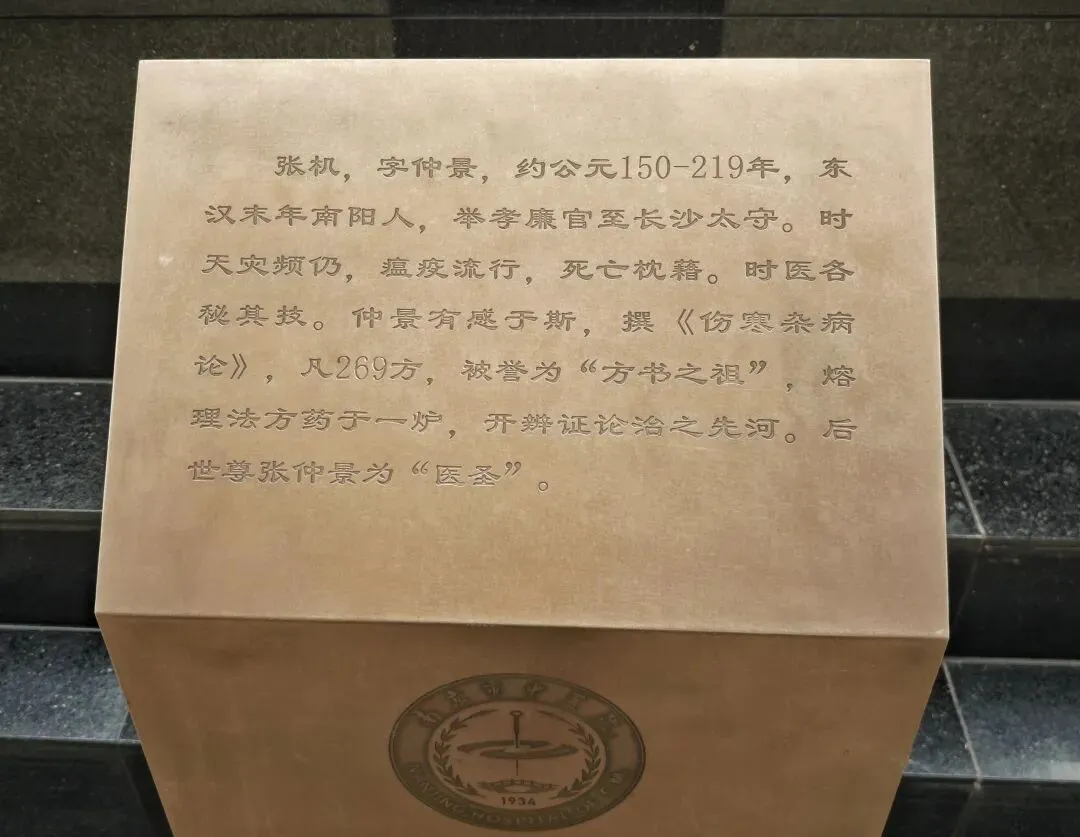 张机，字仲景，约公元150-219年，东
汉末年南阳人，举孝廉官至长沙太守。时
天灾频仍，瘟疫流行，死亡枕藉。时医各
秘其技。仲景有感于斯，撰《伤寒杂病
论》，凡269方，被誉为“方书之祖”，熔
理法方药于一炉，开辨证论治之先河。后
世尊张仲景为“医圣”。
南京市中医院
1934
NANJING HOSPITAL OF T.C.M